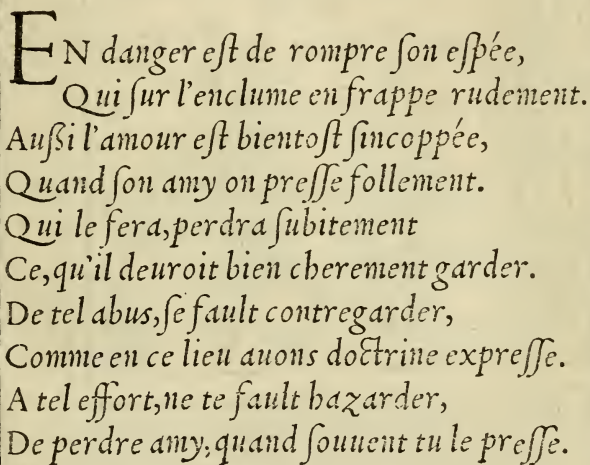 EN danger eſt de rompre ſon eſpée,
Qui ſur l'enclume en frappe rudement.
Auſsi l'amour eſt bientoſt ſincoppée,
Quand ſon amy on preſſe follement.
Qui le fera, perdra ſubitement
Ce, qu'il deuroit bien cherement garder.
De tel abus, ſe fault contregarder,
Comme en ce lieu auons doctrine expreſſe.
A tel effort, ne te fault hazarder,
De perdre amy, quand ſouuent tu le preſſe.